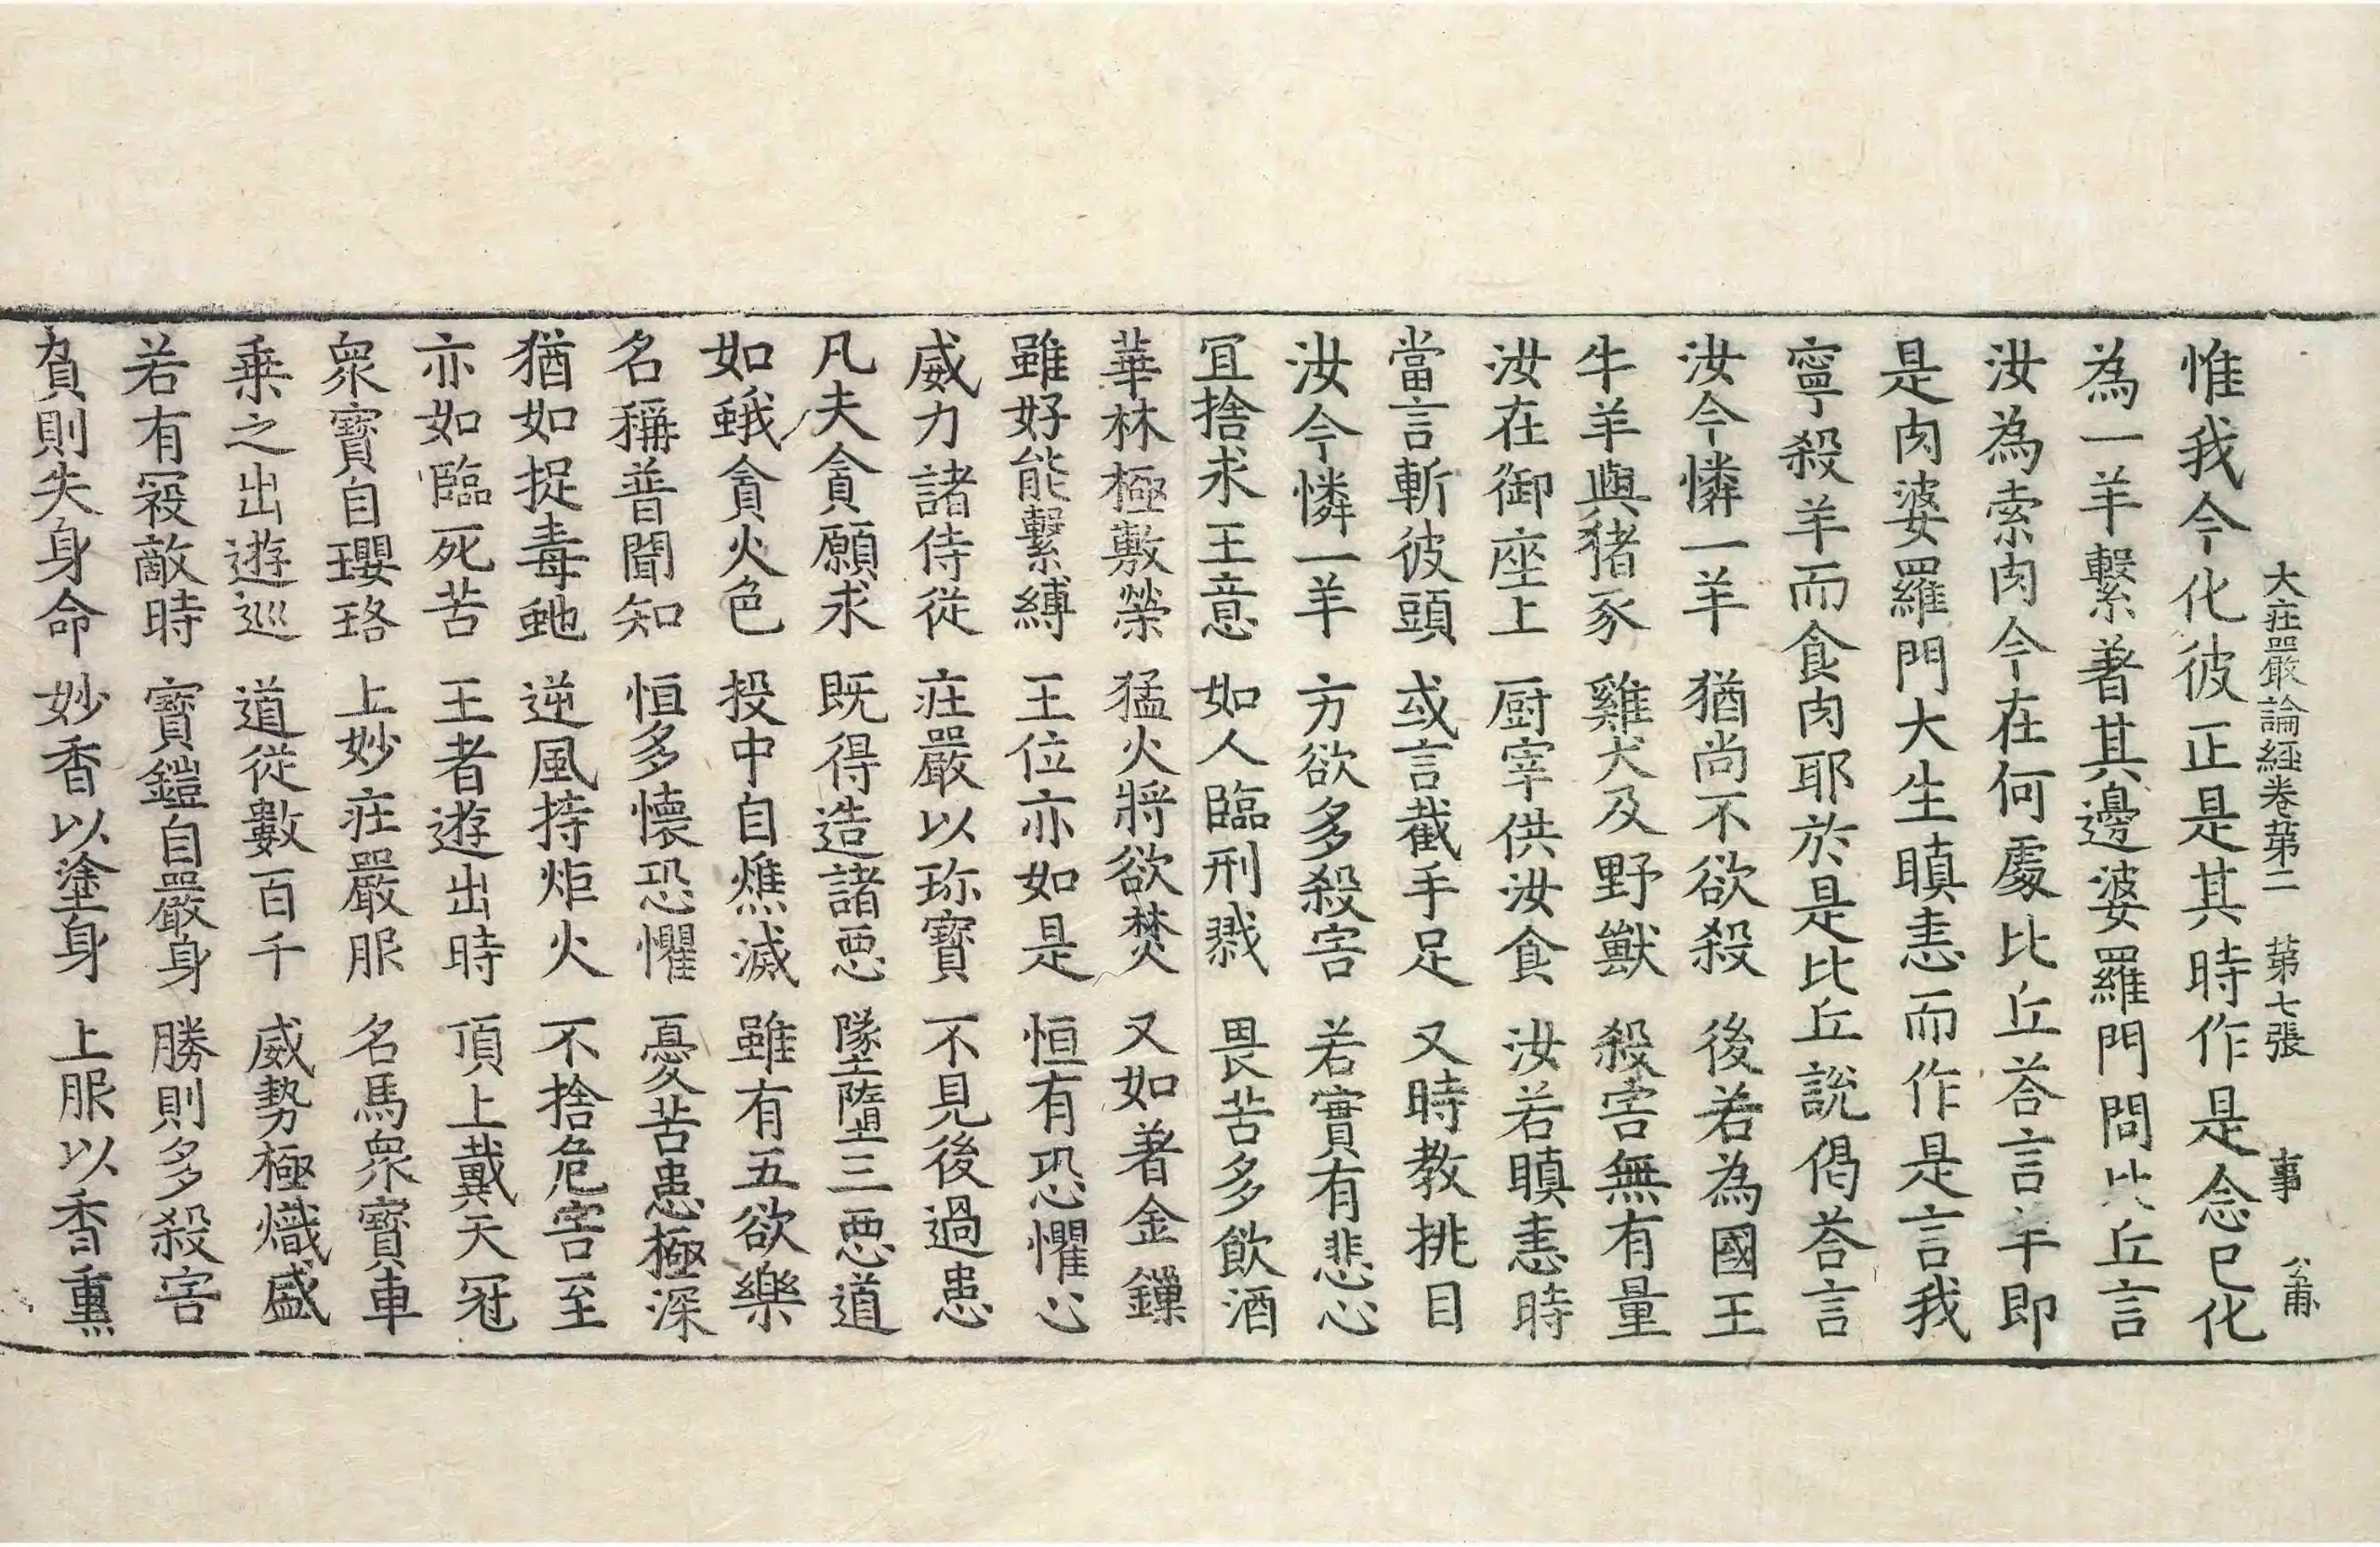 大莊嚴論經卷第二 第七張 事 公甫
惟我今化彼正是其時作是念已化
為一羊繫著其邊婆羅門問比丘言
汝為索肉今在何處比丘荅言羊即
是肉婆羅門大生瞋恚而作是言我
寧殺羊而食肉耶於是比丘說偈荅言
汝今憐一羊 猶尚不欲殺 後若為國王
牛羊與猪豕 雞犬及野獸 殺害無有量
汝在御座上 厨宰供汝食 汝若瞋恚時
當言斬彼頭 或言截手足 又時教挑目
汝今憐一羊 方欲多殺害 若實有悲心
冝捨求王意 如人臨刑戮 畏苦多飲酒
華林極敷榮 猛火將欲焚 又如著金鏁
雖好能繫縛 王位亦如是 恒有恐懼心
威力諸侍從 莊嚴以珎寶 不見後過患
凡夫貪願求 既得造諸惡 墜墮三惡道
如蛾貪火色 投中自燋滅 雖有五欲樂
名稱普聞知 恒多懷恐懼 憂苦患極深
猶如捉毒虵 逆風持炬火 不捨危害至
亦如臨死苦 王者遊出時 頂上戴天冠
衆寶自瓔珞 上妙莊嚴服 名馬衆寶車
乗之出遊巡 道從數百千 威勢極熾盛
若有冦敵時 寶鎧自嚴身 勝則多殺害
負則失身命 妙香以塗身 上服以香熏